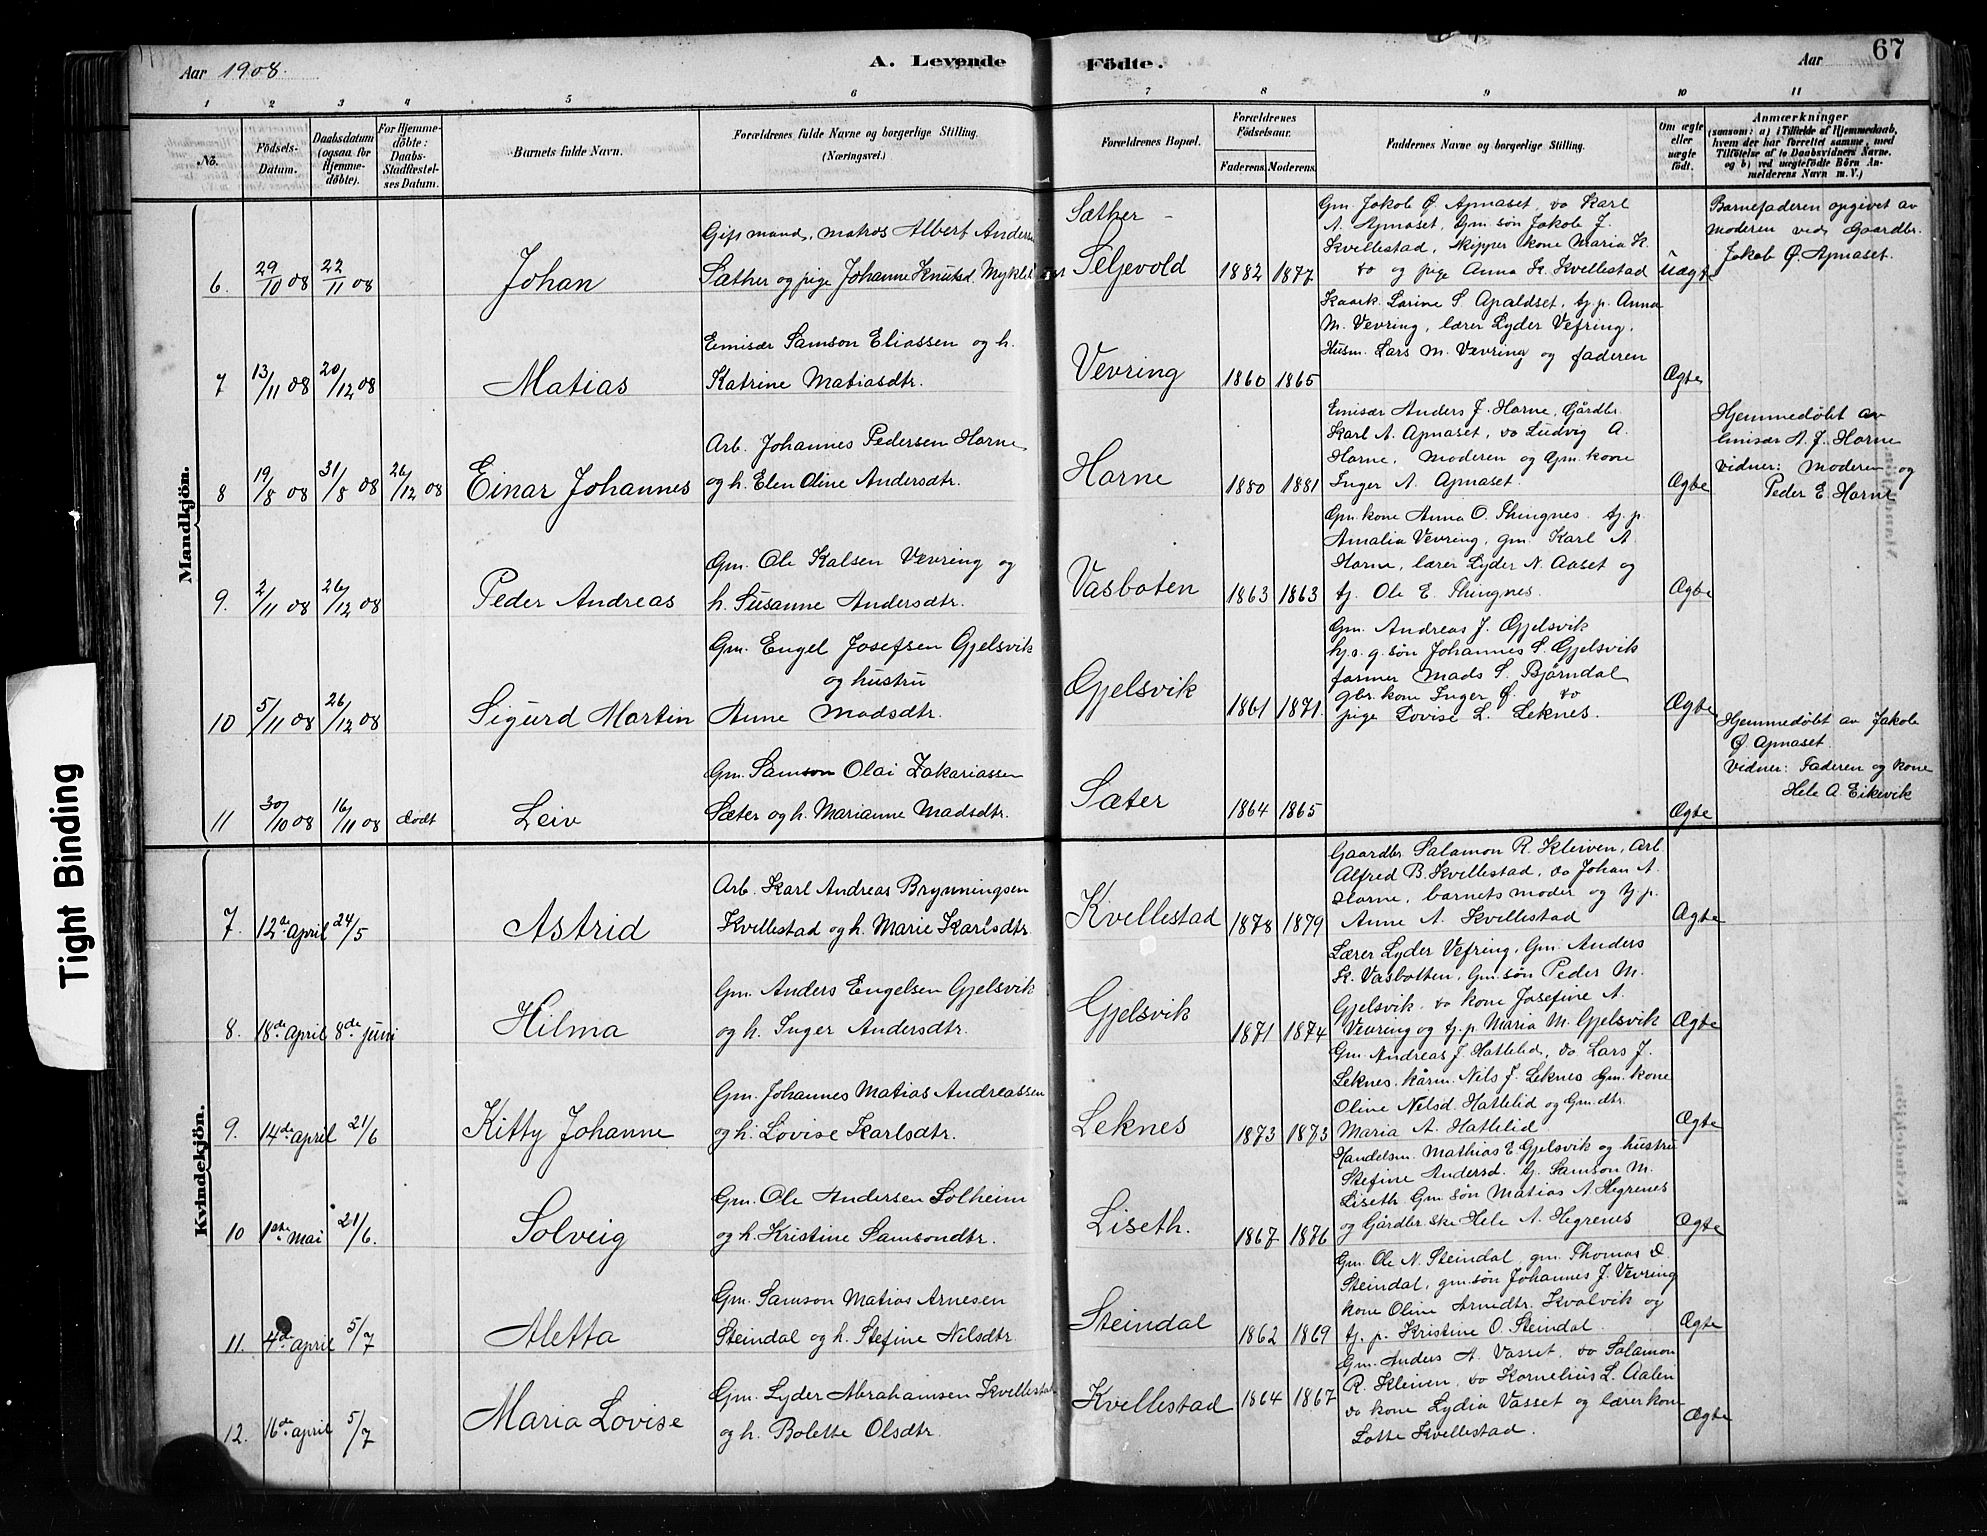 Aar 1908.
A. Levende
Födte.
Aar
67
1 2 3 4 5 6 7 8 9 10 11
No.
Födsels-Datum.
Daabsdatum (ogsaa for Hjemme-döbte).
For Hjemme-döbte: Daabs-Stadfæstel-ses Datum.
Barnets fulde Navn.
Forældrenes fulde Navne og borgerlige Stilling. (Næringsvei.)
Forældrenes Bopæl.
Forældrenes Födselsaar.
Faderens. Moderens.
Faddernes Navne og borgerlige Stilling.
Om ægte eller uægte födt.
Anmærkninger
(saasom: a) i Tilfælde af Hjemmedaab, hvem der har forrettet samme, med Tilföielse af to Daabsvidners Navne. og b) ved uægtefödte Börn An-melderens Navn m. V.)
Mandkjön.
6. 29/10 08 22/11 08 Johan
Gift mand, matros Albert Anders
Sæther og pige Johanne Knutsd. Myklebust
Sæther -
Seljevold 1882 1877
Gm. Jakob Ø. Apnaset, do Karl
A. Apnaset, Gm. søn Jakob J.
Kvellestad, skipper kone Maria K.
do og pige Anna K. Kvellestad
Uægte
Barnefaderen opgivet av
moderen ved Gaardbr.
Jakob Ø. Apnaset.
7 13/11 08 20/12 08 Matias
Emisær Samson Eliassen og h.
Katrine Matiasdtr.
Vevring 1860 1865
Kaark. Larine S. Apaldset, tj. p. Anna
M. Vevring, lærer Lyder Vefring.
Husm. Lars M. Vevring og faderen
Ægte
8 19/8 08 31/8 08 26/12 08 Einar Johannes
Arb. Johannes Pedersen Horne
og h. Elen Oline Andersdtr.
Horne 1880 1881
Emisær Anders J. Horne, Gårdbr.
Karl A. Apnaset, do Ludvig A.
Horne, Moderen og Gm. kone
Inger A. Apnaset.
Ægte
Hjemmedøbt av
Emisær A. J. Horne
Vidner: Moderen og
Peder E. Horne
9. 2/11 08 26/12 08 Peder Andreas
Gm. Ole Kalsen Vevring og
h. Susanne Andersdtr.
Vasboten 1863 1863
Gm. kone Anna O. Thingnes. tj. p.
Amalia Vevring, gm. Karl A.
Horne, lærer Lyder N. Aaset og
tj. Ole E. Thingnes.
Ægte
10 5/11 08 26/12 08 Sigurd Martin
Gm. Engel Josefsen Gjelsvik
og hustru
Anne Madsdtr.
Gjelsvik 1861 1871
Gm. Andreas J. Gjelsvik
hj.s. g. søn Johannes S. Gjelsvik
farmer Mads S. Bjørndal
gbr. kone Inger Ø. do
pige Lovise L. Leknes.
Ægte
11 30/10 08 16/11 08 dødt Leiv
Gm. Samson Olai Zakariassen
Sæter og h. Marianne Madsdtr.
Sæter 1864 1865
Ægte
Hjemmedøbt av Jakob
Ø. Apnaset.
Vidner: Faderen og kone
Hele A. Eikevik
Kvindekjön.
7. 12te april 24/5 Astrid
Arb. Karl Andreas Brynningsen
Kvellestad og h. Marie Karlsdtr.
Kvellestad 1878 1879
Gaardbr. Salamon R. Kleiven, Arb.
Alfred B. Kvellestad, do Johan A.
Horne, barnets moder og tj. p.
Anne A. Kvellestad
Ægte
8. 18de april 8de juni Hilma
Gm. Anders Engelsen Gjelsvik
og h. Inger Andersdtr.
Gjelsvik 1871 1874
Lærer Lyder Vefring, Gm. Anders
K. Vasbotten, Gm. søn Peder M.
Gjelsvik. do kone Josefine A.
Vevring og tj. p. Maria M. Gjelsvik
Ægte
9. 14de april 21/6 Kitty Johanne
Gm. Johannes Matias Andreassen
og h. Lovise Karlsdtr.
Leknes 1873 1873
Gm. Andreas J. Hattelid, do Lars J.
Leknes. kårm. Nils J. Leknes Gm. kone
Oline Nelsd. Hattelid og Gm. dtr.
Maria A. Hattelid
Ægte
10 1ste mai 21/6. Solveig
Gm. Ole Andersen Solheim
og h. Kristine Samsondtr.
Liseth. 1867 1876
Handelsm. Mathias E Gjelsvik og hustru
Stefine Andersd. tj. Samson M.
Liseth Gm. søn Matias A. Hegrenes
og Gårdbr. ske Hele A. Hegrenes
Ægte
11. 4de april 5/7 Aletta
Gm. Samson Matias Arnesen
Steindal og h. Stefine Nilsdtr.
Steindal 1862 1869
Gm. Ole N. Steindal, gm. Thomas D.
Steindal, gm. søn Johannes J. Vevring
kone Oline Arnedtr. Kvalvik og
tj. p. Kristine O. Steindal.
Ægte
12. 16de april 5/7 Maria Lovise
Gm. Lyder Abrahamsen Kvellestad
og h. Bolette Olsdtr.
Kvellestad 1864 1867
Gm. Anders A. Vasset, do Salamon
R. Kleiven, do Kornelius L. Aalen
do kone Lydia Vasset og lærer kone
Lotte Kvellestad.
Ægte
Tight Binding